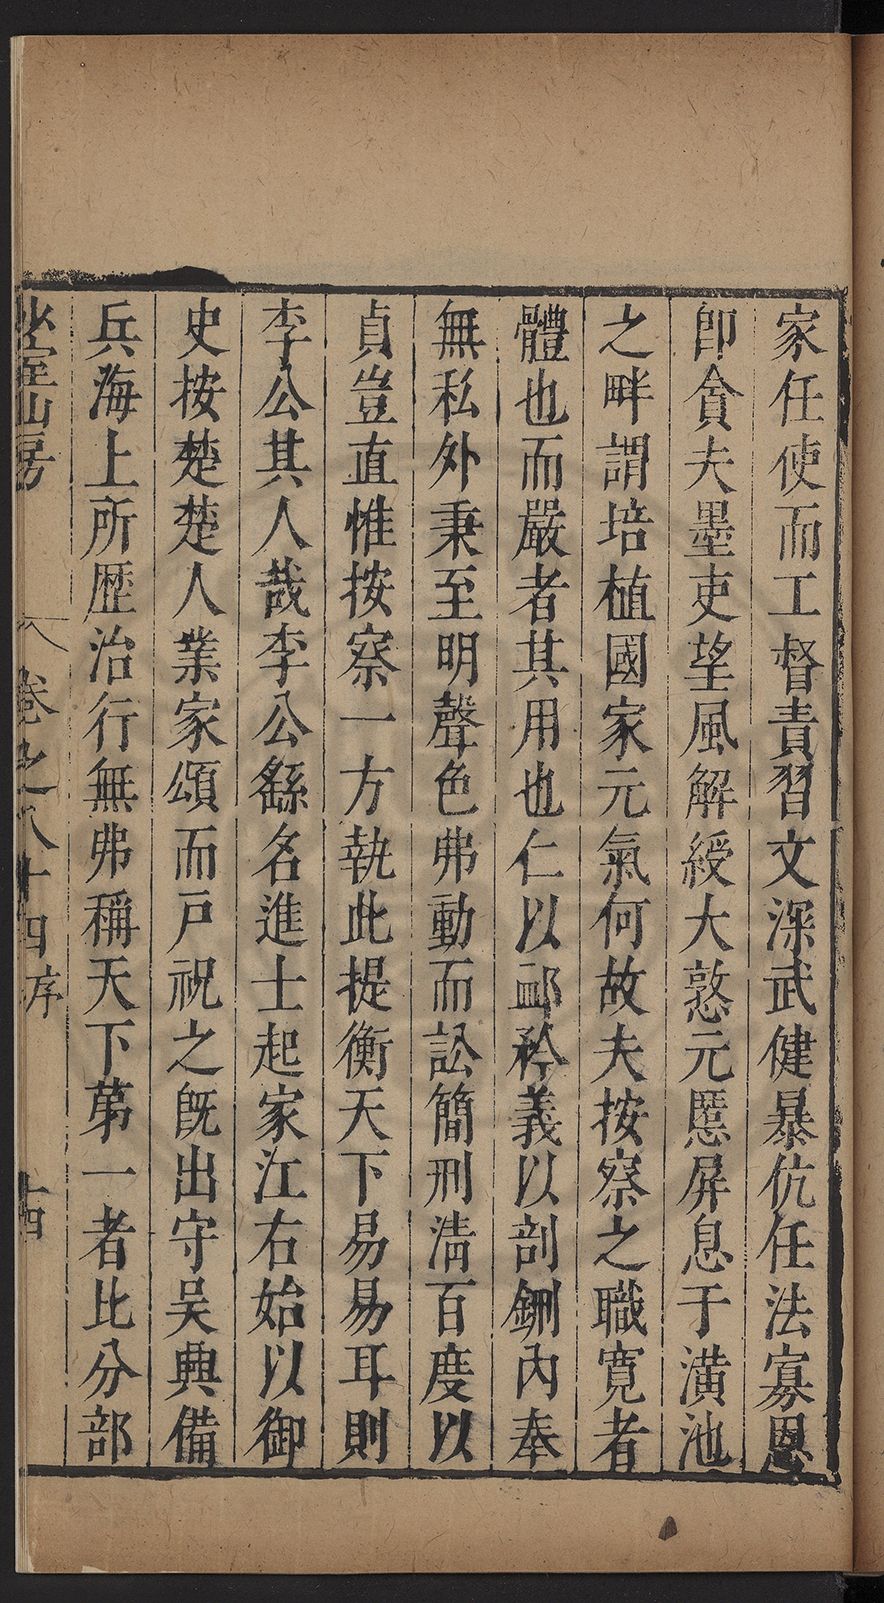 家任使而工督責習文深武健暴伉任法寡恩
卽貪夫墨吏望風解綬大憝元慝屏息于潢池
之畔謂培植國家元氣何故夫按察之職寬者
體也而嚴者其用也仁以䘏矜義以剖鉶內奉
無私外秉至明聲色弗動而訟簡刑淸百度以
貞豈直惟按察一方執此提衡天下易易耳則
李公其人哉李公繇名進士起家江右始以御
史按楚楚人業家頌而戸祝之旣出守吳興備
兵海上所歷治行無弗稱天下第一者比分部
山房 卷之八十四序 十四